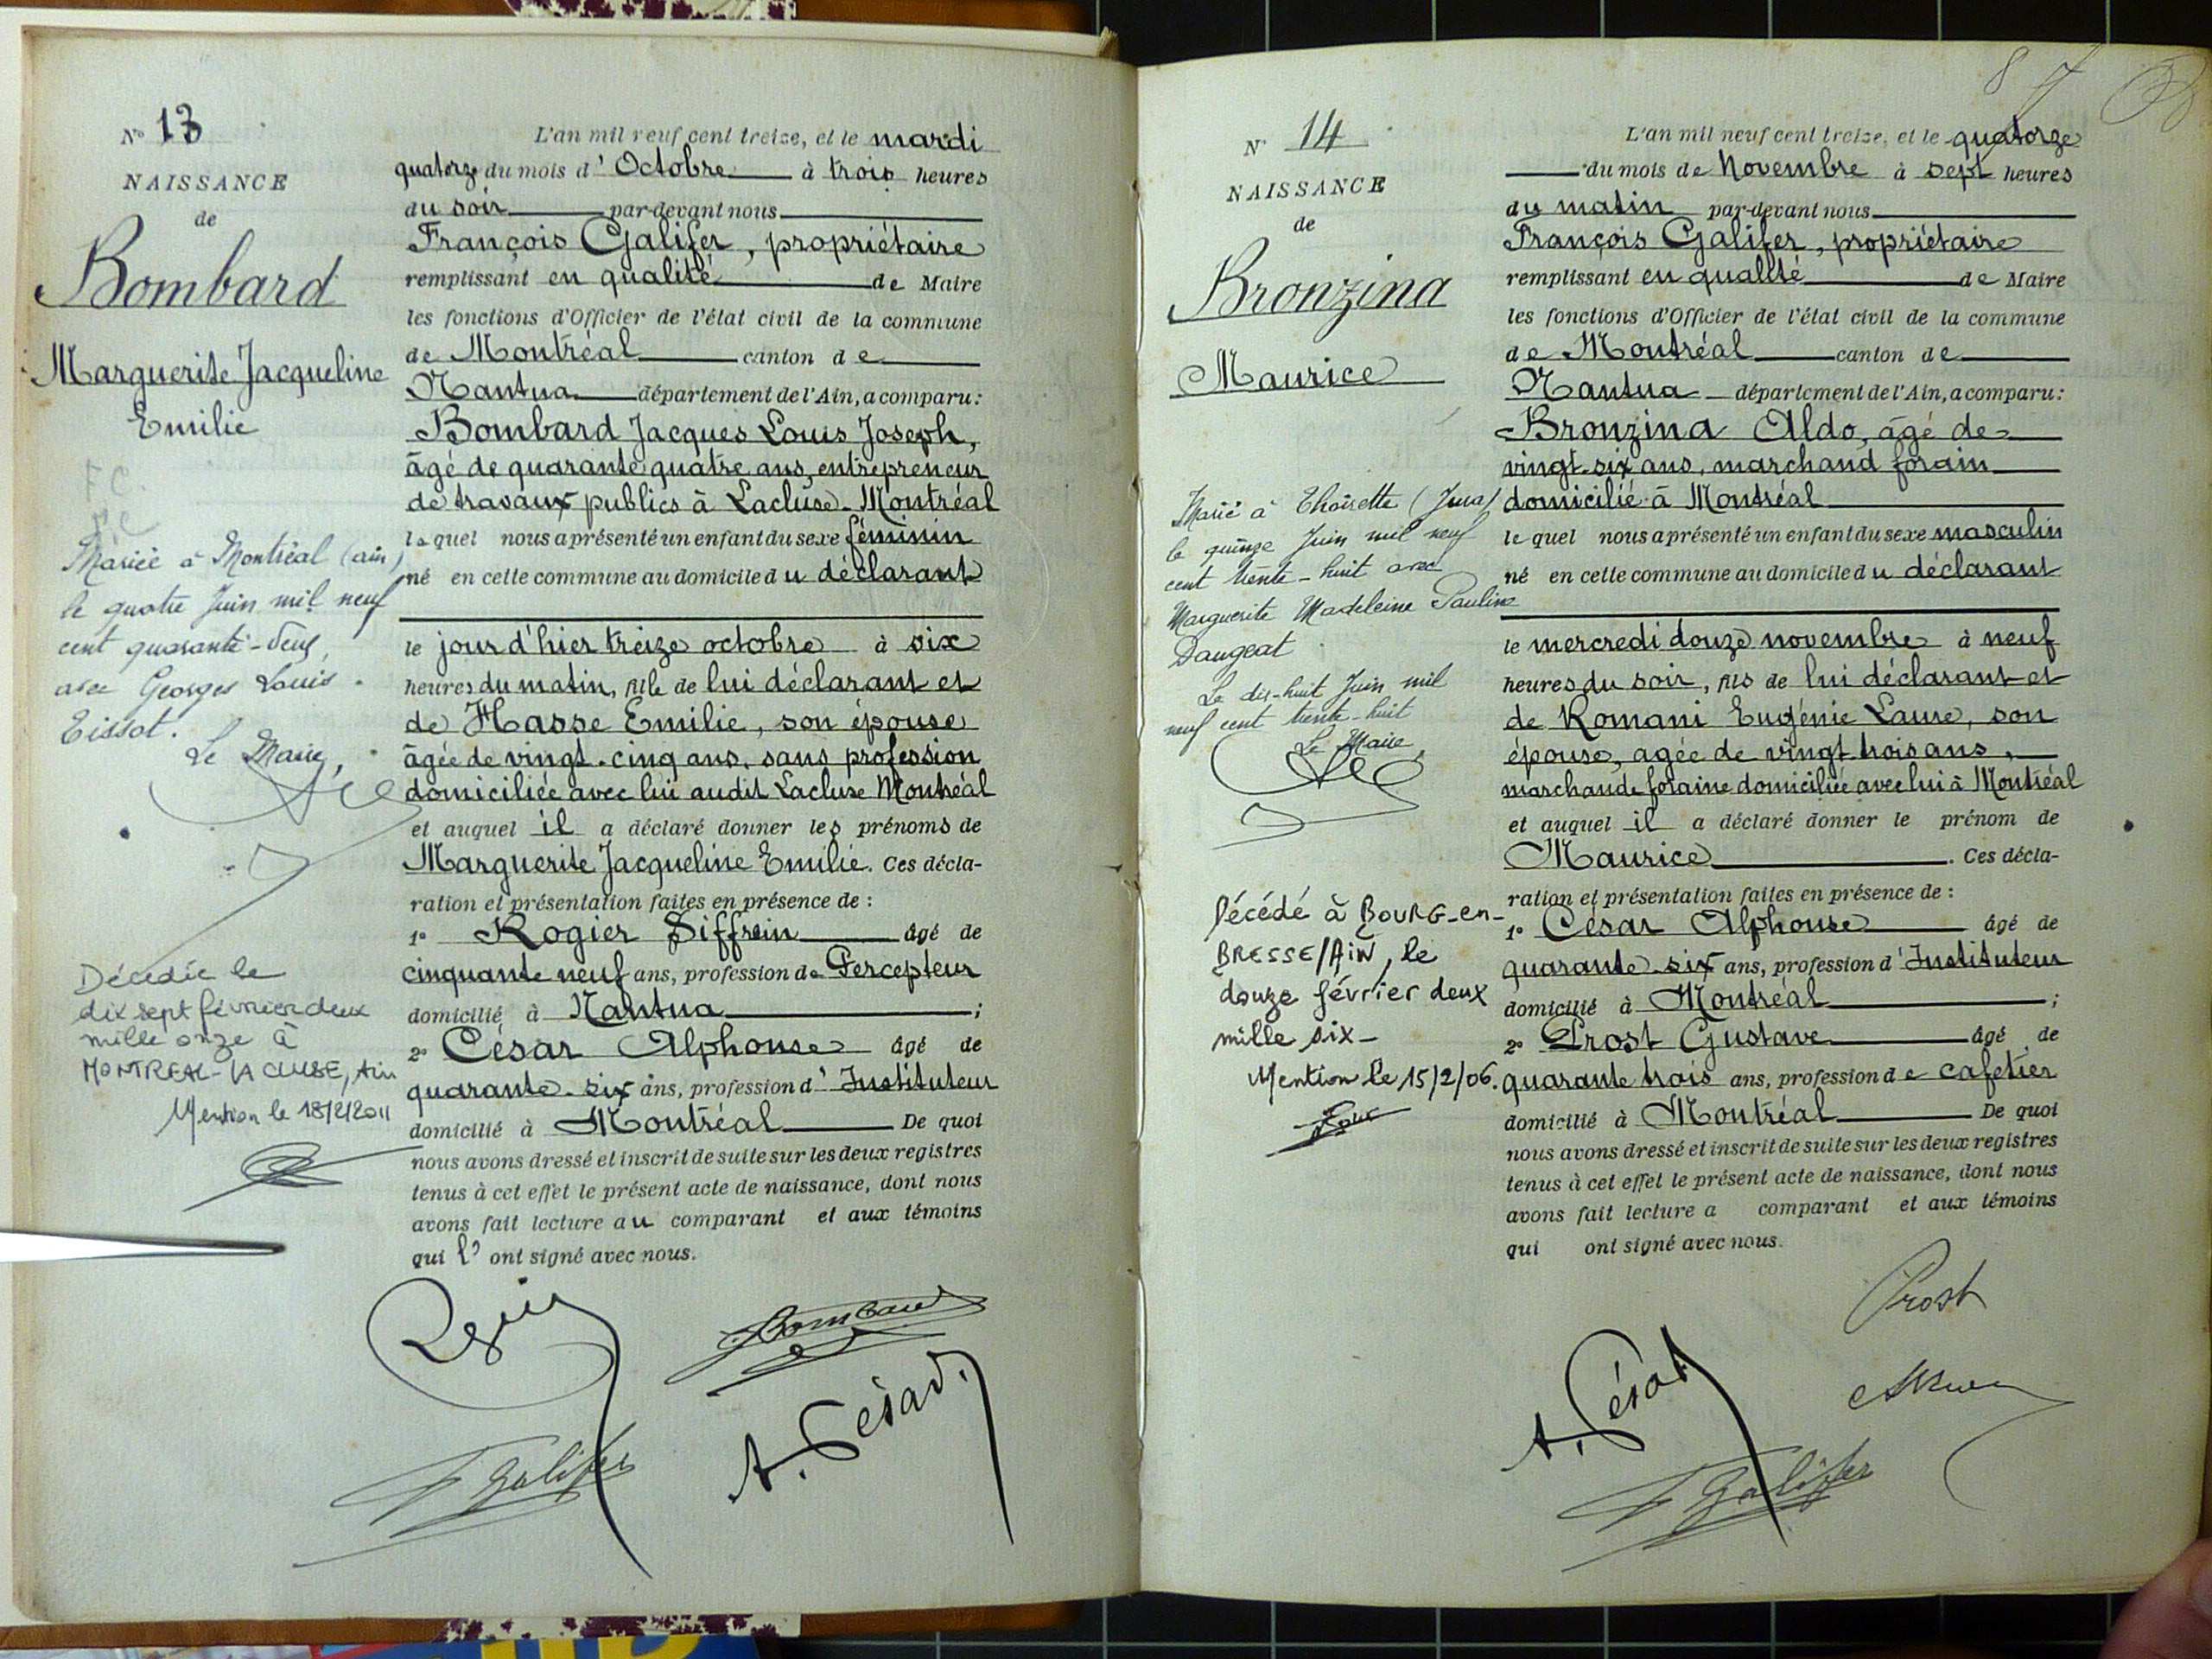 N° 13
NAISSANCE
de
Bombard
Marguerite Jacqueline
Emilie
Mariée à Montréal (ain)
le quatre Juin mil neuf
cent quarante-deux,
avec Georges Louis
Tissot.
Le Maire,
Décédée le
dix sept février deux
mille onze à
MONTREAL-LA CLUSE, Ain
Mention le 18/2/2011
L'an mil neuf cent treize, et le mardi
quatorze du mois d'Octobre à trois heures
du soir par-devant nous
François Galifer, propriétaire
remplissant en qualité de Maire
les fonctions d'Officier de l'état civil de la commune
de Montréal canton de
Nantua département de l'Ain, a comparu:
Bombard Jacques Louis Joseph,
âgé de quarante quatre ans, entrepreneur
de travaux publics à Lacluse-Montréal
lequel nous a présenté un enfant du sexe féminin
né en cette commune au domicile du déclarant
le jour d'hier treize octobre à six
heures du matin, fille de lui déclarant et
de Hasse Emilie, son épouse
âgée de vingt-cinq ans, sans profession
domiciliée avec lui audit Lacluse Montréal
et auquel il a déclaré donner les prénoms de
Marguerite Jacqueline Emilie. Ces décla-
ration et présentation faites en présence de :
1° Rogier Siffrein âgé de
cinquante neuf ans, profession de Percepteur
domicilié à Nantua ;
2° César Alphonse âgé de
quarante-six ans, profession d'Instituteur
domicilié à Montréal De quoi
nous avons dressé et inscrit de suite sur les deux registres
tenus à cet effet le présent acte de naissance, dont nous
avons fait lecture au comparant et aux témoins
qui l'ont signé avec nous.
Bombard
A. César
F Galifer
N° 14
NAISSANCE
de
Bronzina
Maurice
Marié à Thoirette (Jura)
le quinze Juin mil neuf
cent trente-huit avec
Marguerite Madeleine Pauline
Daugeat
Le dix-huit Juin mil
neuf cent trente-huit
Le Maire,
Décédé à BOURG-en-
BRESSE/AIN, le
douze février deux
mille six-
Mention le 15/2/06.
8 7
L'an mil neuf cent treize, et le quatorze
du mois de Novembre à sept heures
du matin par-devant nous
François Galifer, propriétaire
remplissant en qualité de Maire
les fonctions d'Officier de l'état civil de la commune
de Montréal canton de
Nantua département de l'Ain, a comparu:
Bronzina Aldo, âgé de
vingt-six ans, marchand forain
domicilié à Montréal
lequel nous a présenté un enfant du sexe masculin
né en cette commune au domicile du déclarant
le mercredi douze novembre à neuf
heures du soir, fils de lui déclarant et
de Romani Eugénie Laure, son
épouse, agée de vingt trois ans,
marchande foraine domiciliée avec lui à Montréal
et auquel il a déclaré donner le prénom de
Maurice. Ces décla-
ration et présentation faites en présence de :
1° César Alphonse âgé de
quarante-six ans, profession d'Instituteur
domicilié à Montréal ;
2° Prost Gustave âgé de
quarante trois ans, profession de cafetier
domicilié à Montréal De quoi
nous avons dressé et inscrit de suite sur les deux registres
tenus à cet effet le présent acte de naissance, dont nous
avons fait lecture a comparant et aux témoins
qui ont signé avec nous.
Prost
A. César
F Galifer